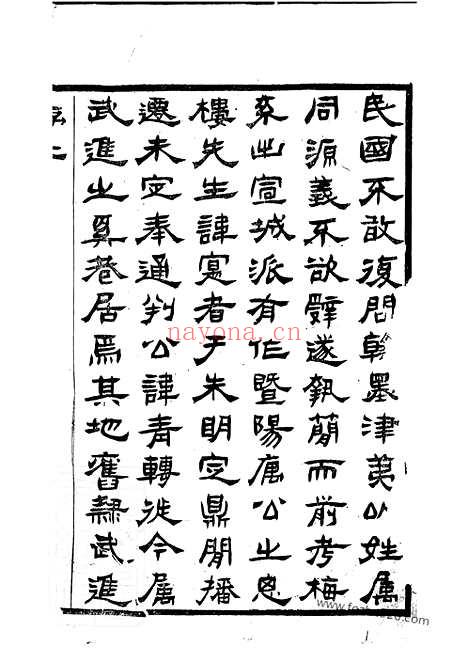 民國不敢復問翰墨津夷以姓屬
同源義不欲辭遂執簡而前考梅
系出宣城派有仁暨陽唐公之思
樓先生諱寔者于朱明定鼎閒播
遷未定奉通判公諱青轉徙今属
武進之奚巷居焉其地舊隸武進
序二
nayona.cn